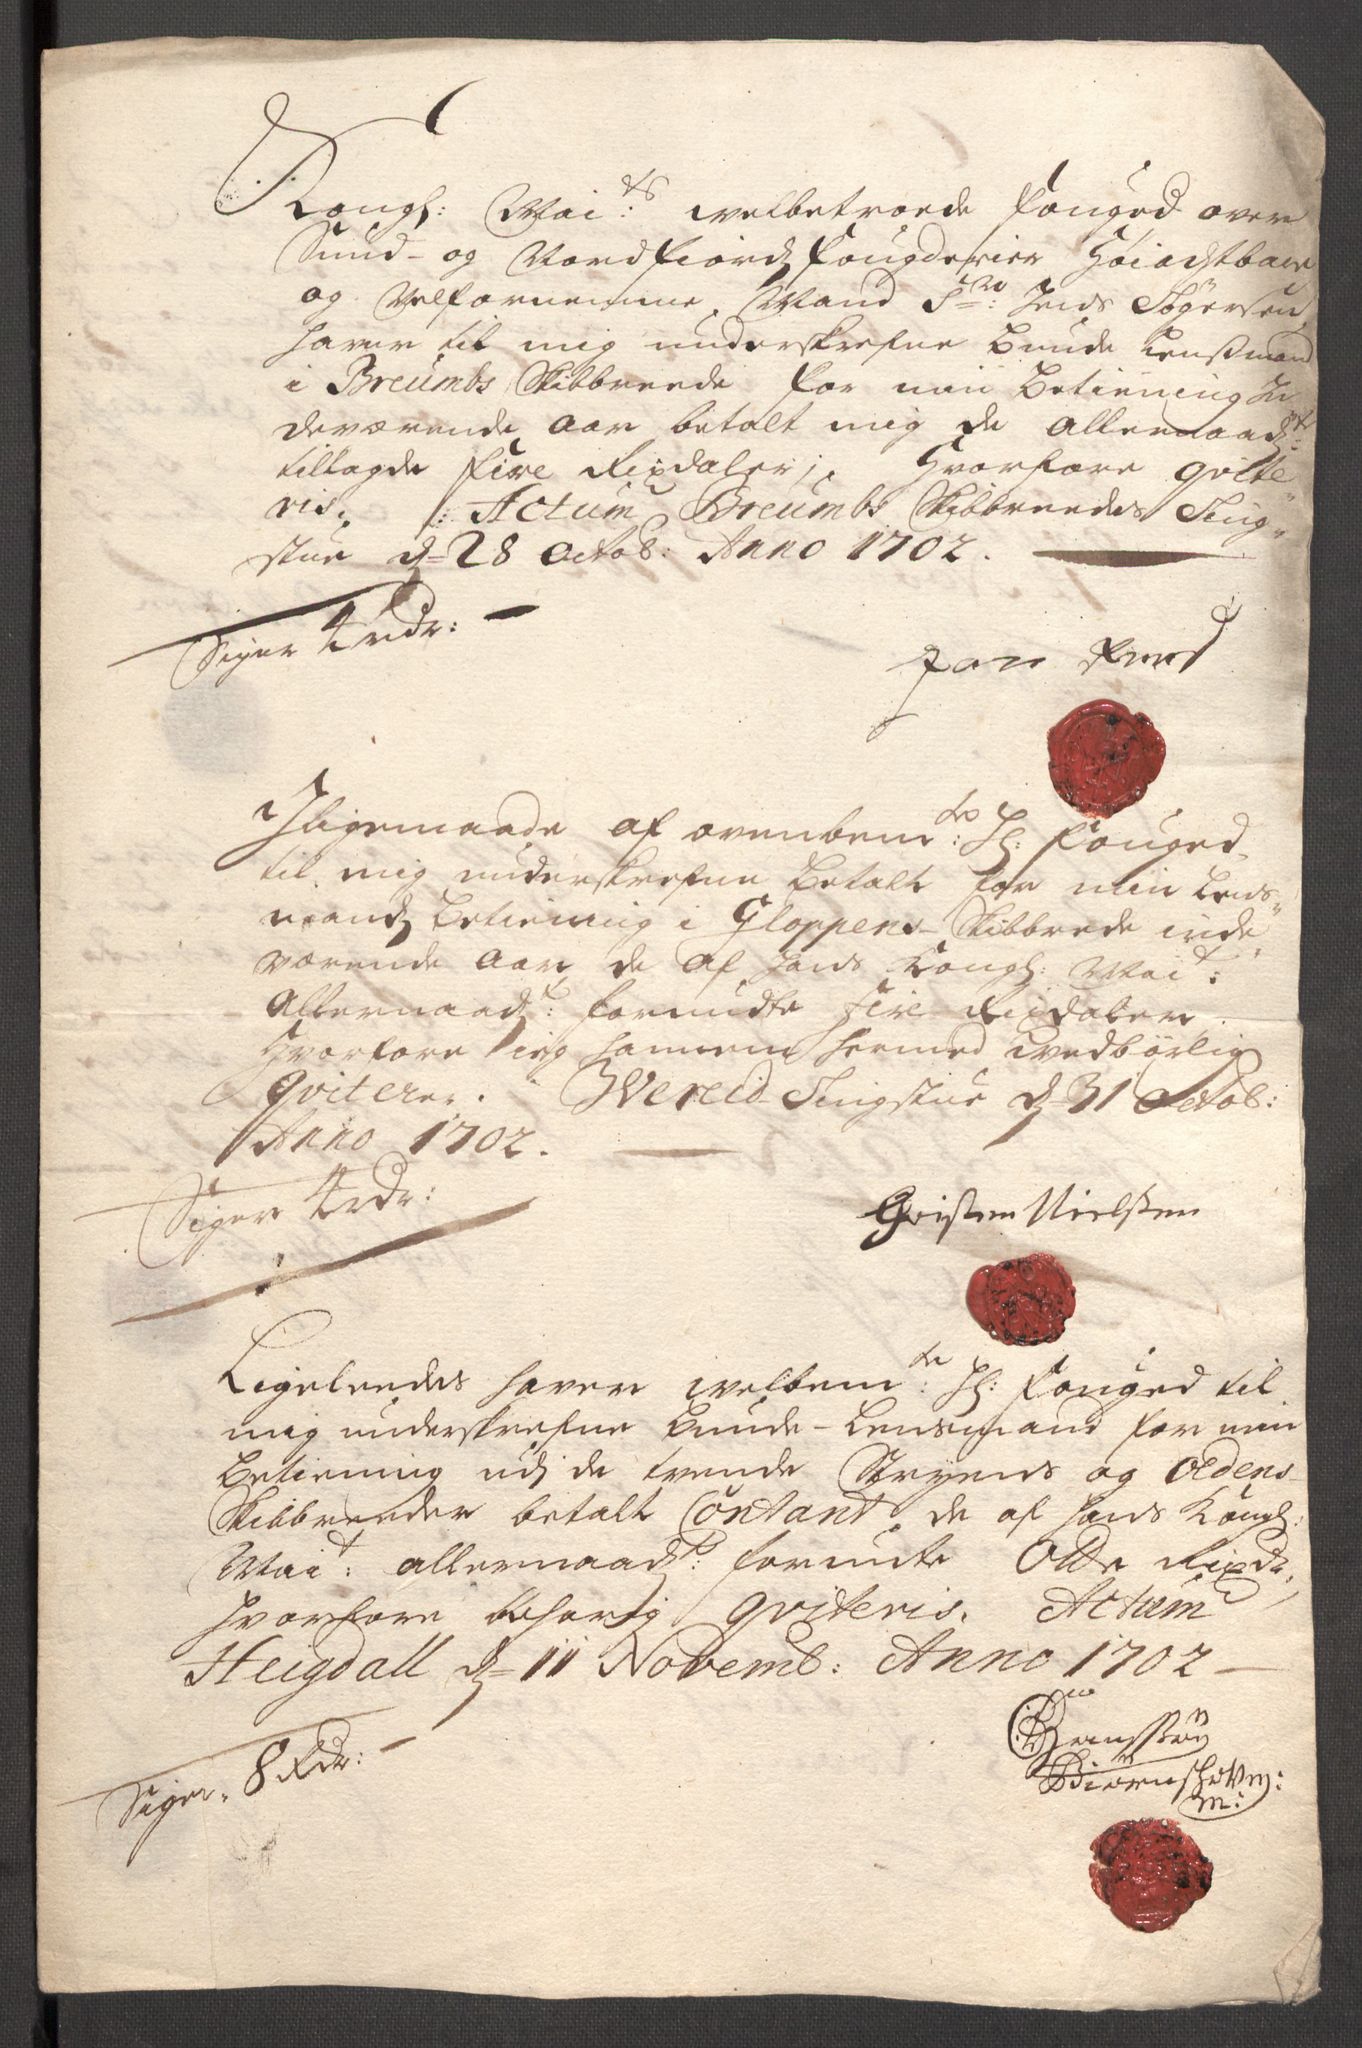 Kongl: Mai:ts welbetroede Fouged over
Sund- og Nordfiords fougderier Høiachtbare
og Velfornemme Mand Sr: Jens
haver til mig underskrefne Bunde Lensmand
i Breumbs Skibbreede for min betiening in
deværende aar betalt mig de Allernaadt:
tillagde fire Rixdaler; Hvorfore qvitte
ris. Actum Breumbs Skibbreedes Ting-
stue d. 28 Octob: Anno 1702.
Siger 4 rdr:
Iligemaade af ovenbemte: Hr: Fouged
til mig underskrefne betalt for min Lens-
mands betiening i Gloppens Skibbrede inde
værende Aar, de af hans Kongl: Mait:
Allernaadt: forundte fire Rixdaler,
Hvorfore ieg hannem hermed wedbørlig
qviterer. Wereid Tingstue d. 31 Octob:
Anno 1702.
Siger 4 rdr:
Christen Nielssen
Ligeleedes haver welbemte: Hr: Fouged til
mig underskrefne Bunde-Lensmand for min
betiening udj de tvende Stryens og Oldens
Skibbreeder betalt Contant, de af hans Kongl:
Mait: allernaadt: forundte Otte Rixdr,
hvorfore behørig qviteris. Actum
Heigdall d. 11 Novemb: Anno 1702
Siger 8 Rdr: